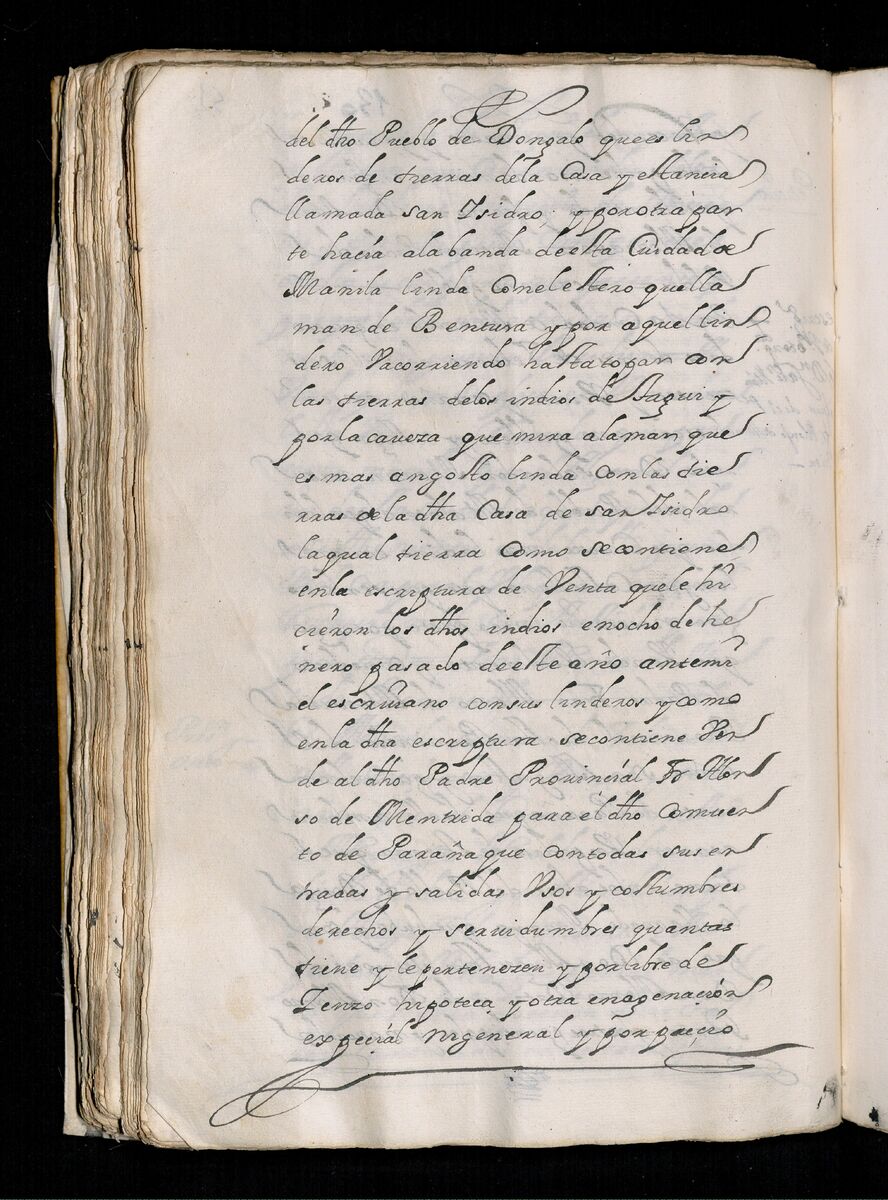 del dho Pueblo de Dongalo que es lin
deros de tierras dela Casa y estancia
llamada san Isidro, y por otra par
te hacia ala banda de esta Ciudad de
Manila linda Con el estero que lla
man de Bentura y por aquel lin
dero Va corriendo hasta topar con
las tierras delos indios de
por la caveza que mira ala mar que
es mas angosto linda con las tie
rras de la dha Casa de san Isidro
la qual tierra Como se contiene
en la escriptura de Venta que le hi
cieron los dhos indios en ocho de he
nero pasado de este año ante mi
el escriuano con sus linderos y como
en la dha escriptura se contiene Ven
de al dho Padre Provincial Fr Alon
so de Mentrida para el dho Comuen
to de Parañaque con todas sus en
tradas y salidas Vsos y costumbres
derechos y servidumbres quantas
tiene y le pertenezen y por libre de
Zenzo hipoteca y otra enagenación
expecial ni general y por precio